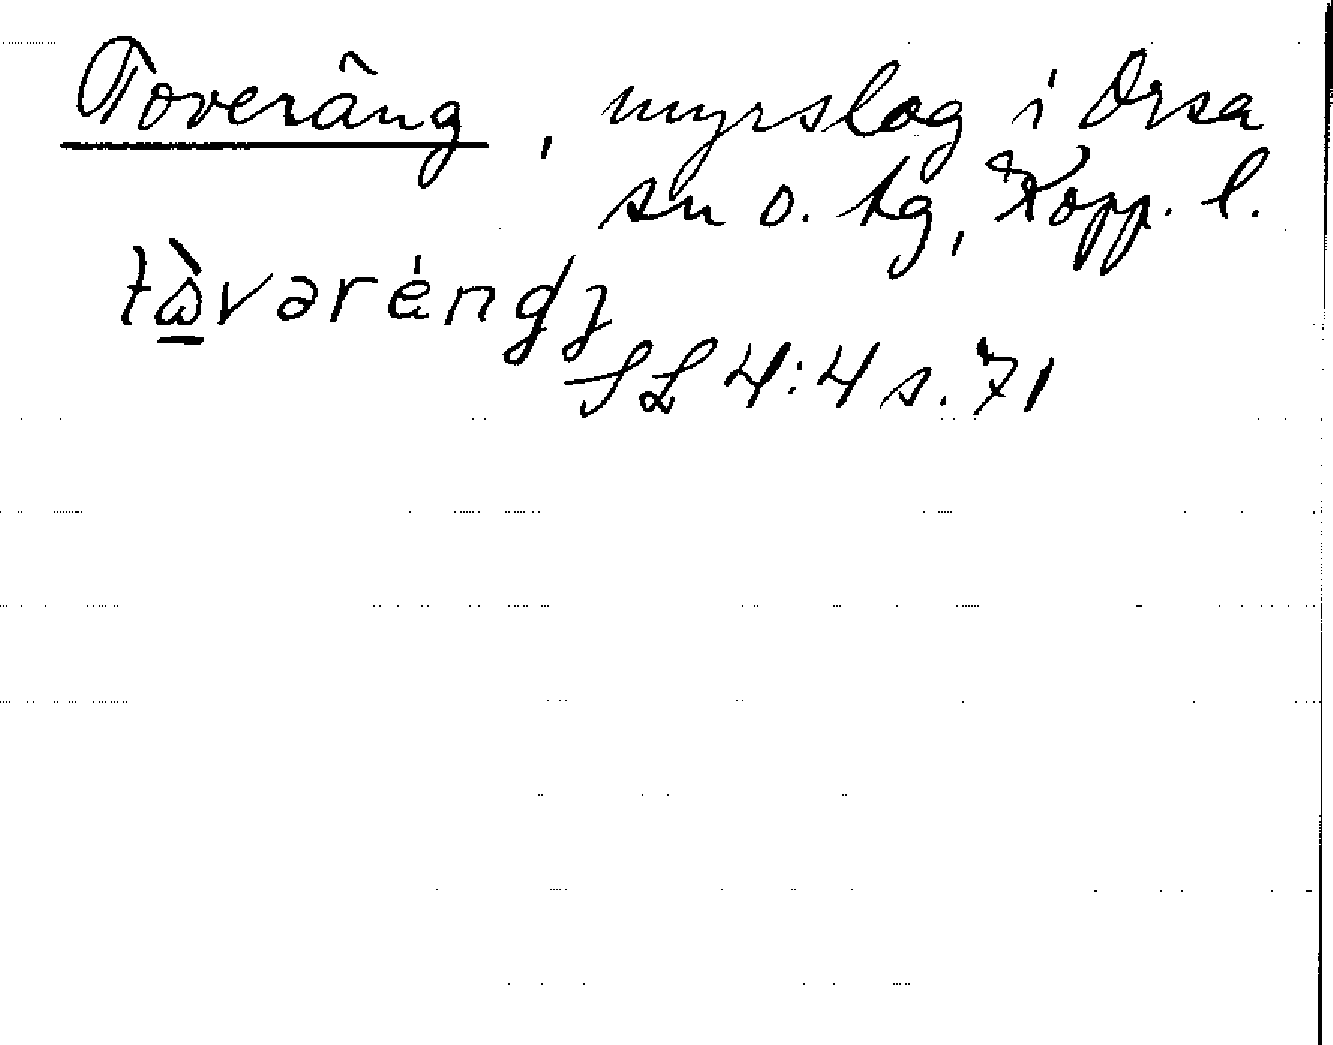 Toveräng, myrslog i Orsa
sn o. hg, Kopp. l.
tòvəréng
SL 4:4 s. 71